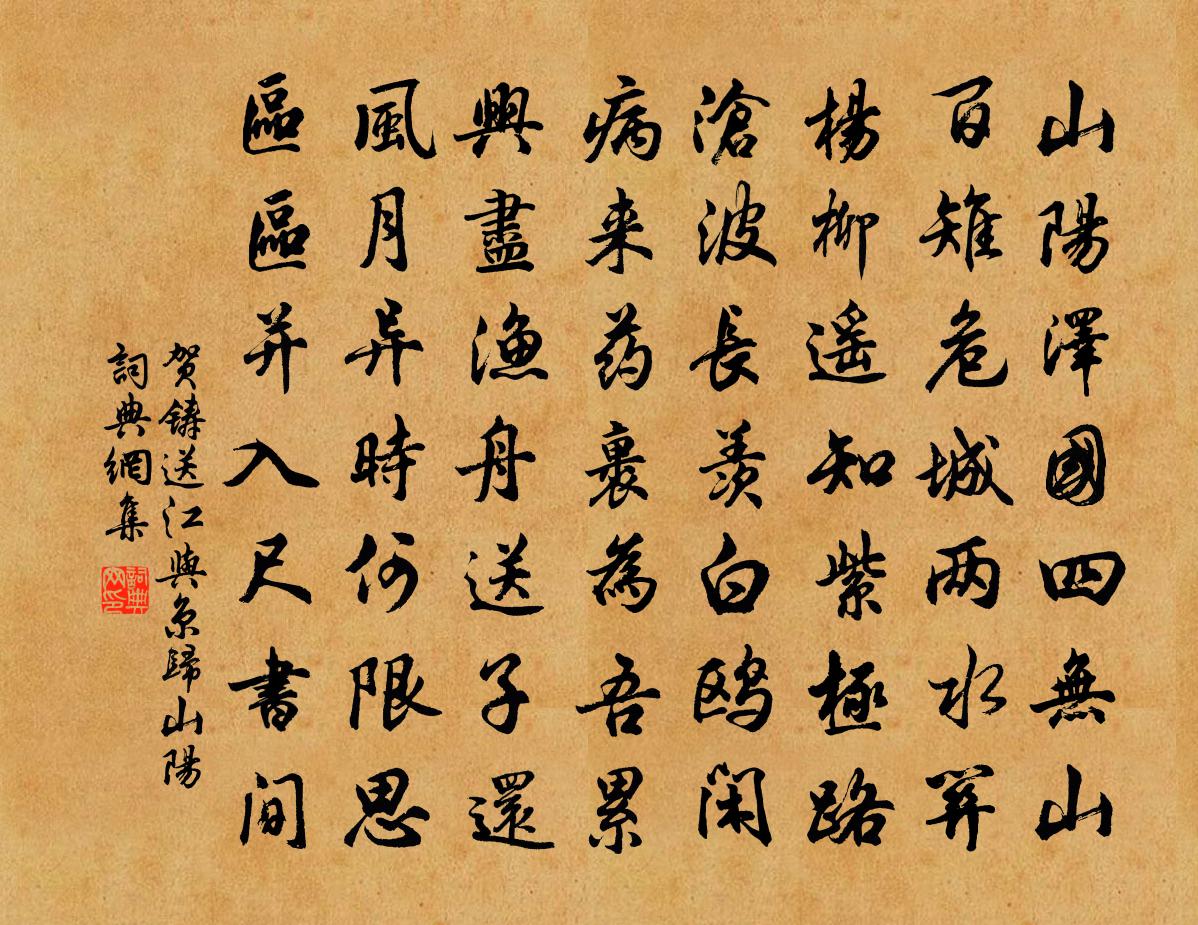 山陽澤國四無山
百雉危城两水關
楊柳遥知紫極路
滄波長羨白鸥閑
病来药裹為吾累
興盡漁舟送子還
風月异時何限思
區區并入尺書間
贺鑄送江與京歸山陽
詞典網集
詞典网印